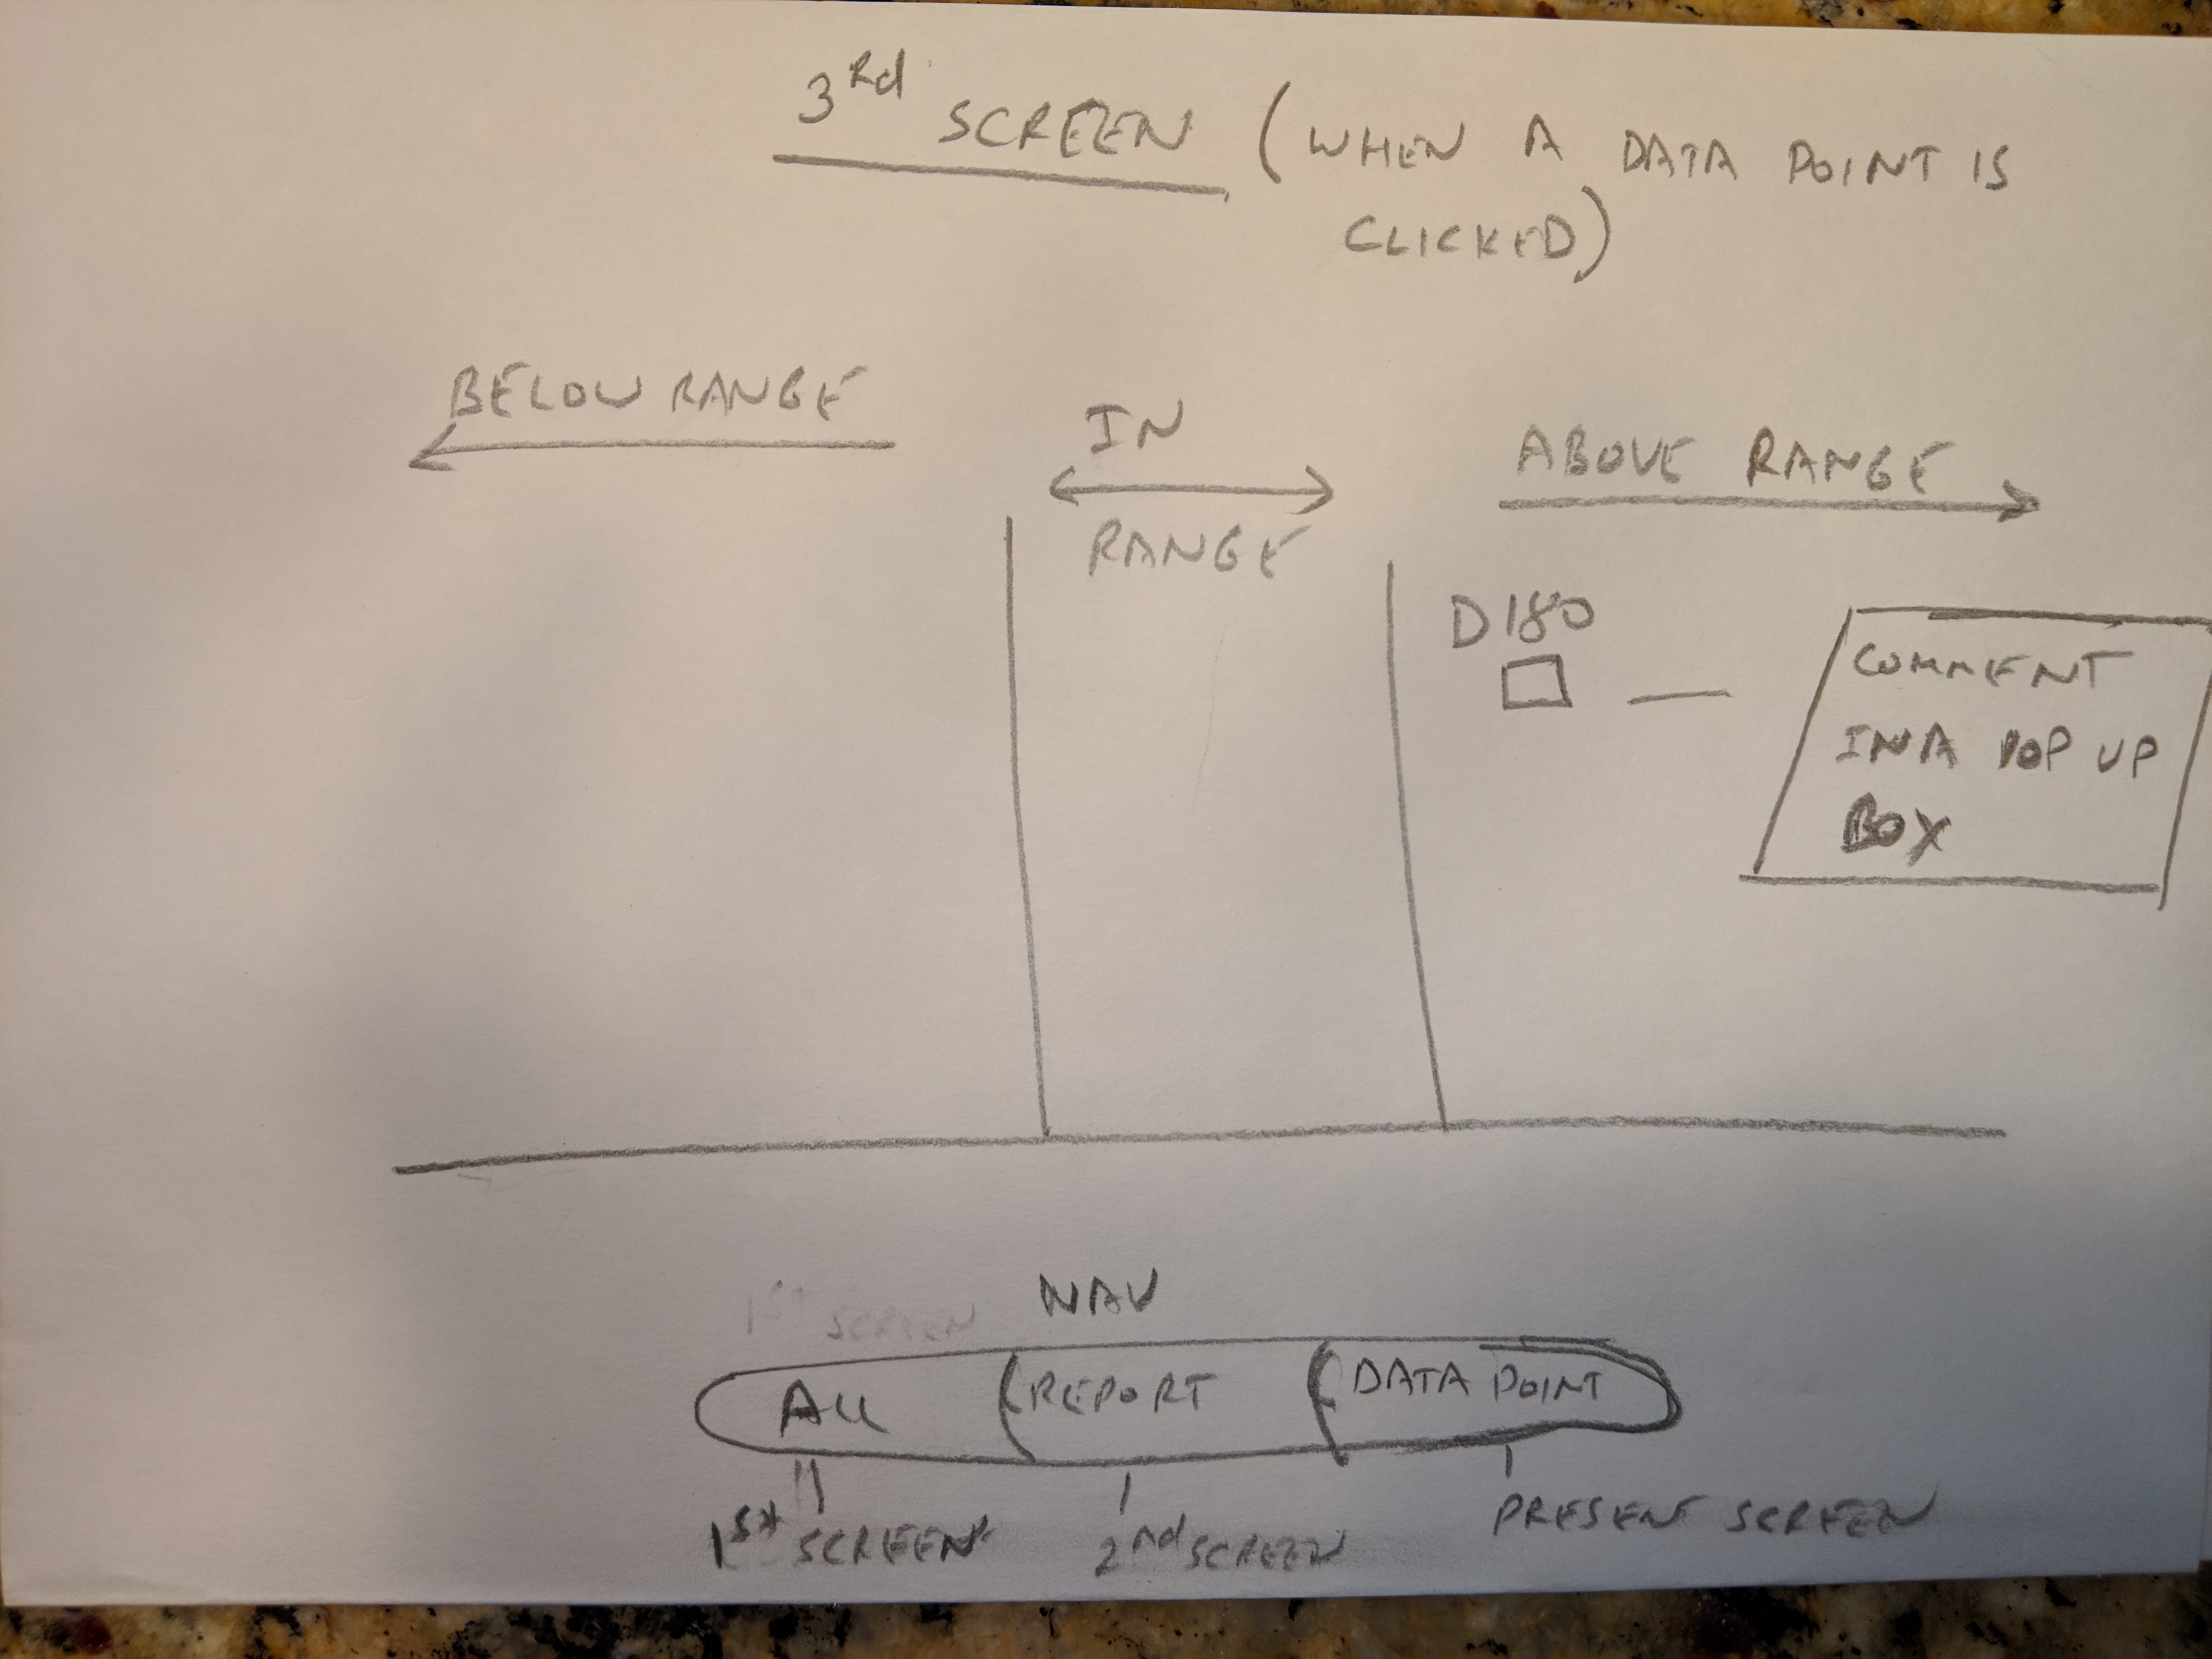 3rd SCREEN (WHEN A DATA POINT IS
CLICKED)
BELOW RANGE
IN
RANGE
ABOVE RANGE
D180
COMMENT
IN A POP UP
BOX
NAV
1st SCREEN
ALL (REPORT (DATA POINT
1st SCREEN 2nd SCREEN PRESENT SCREEN